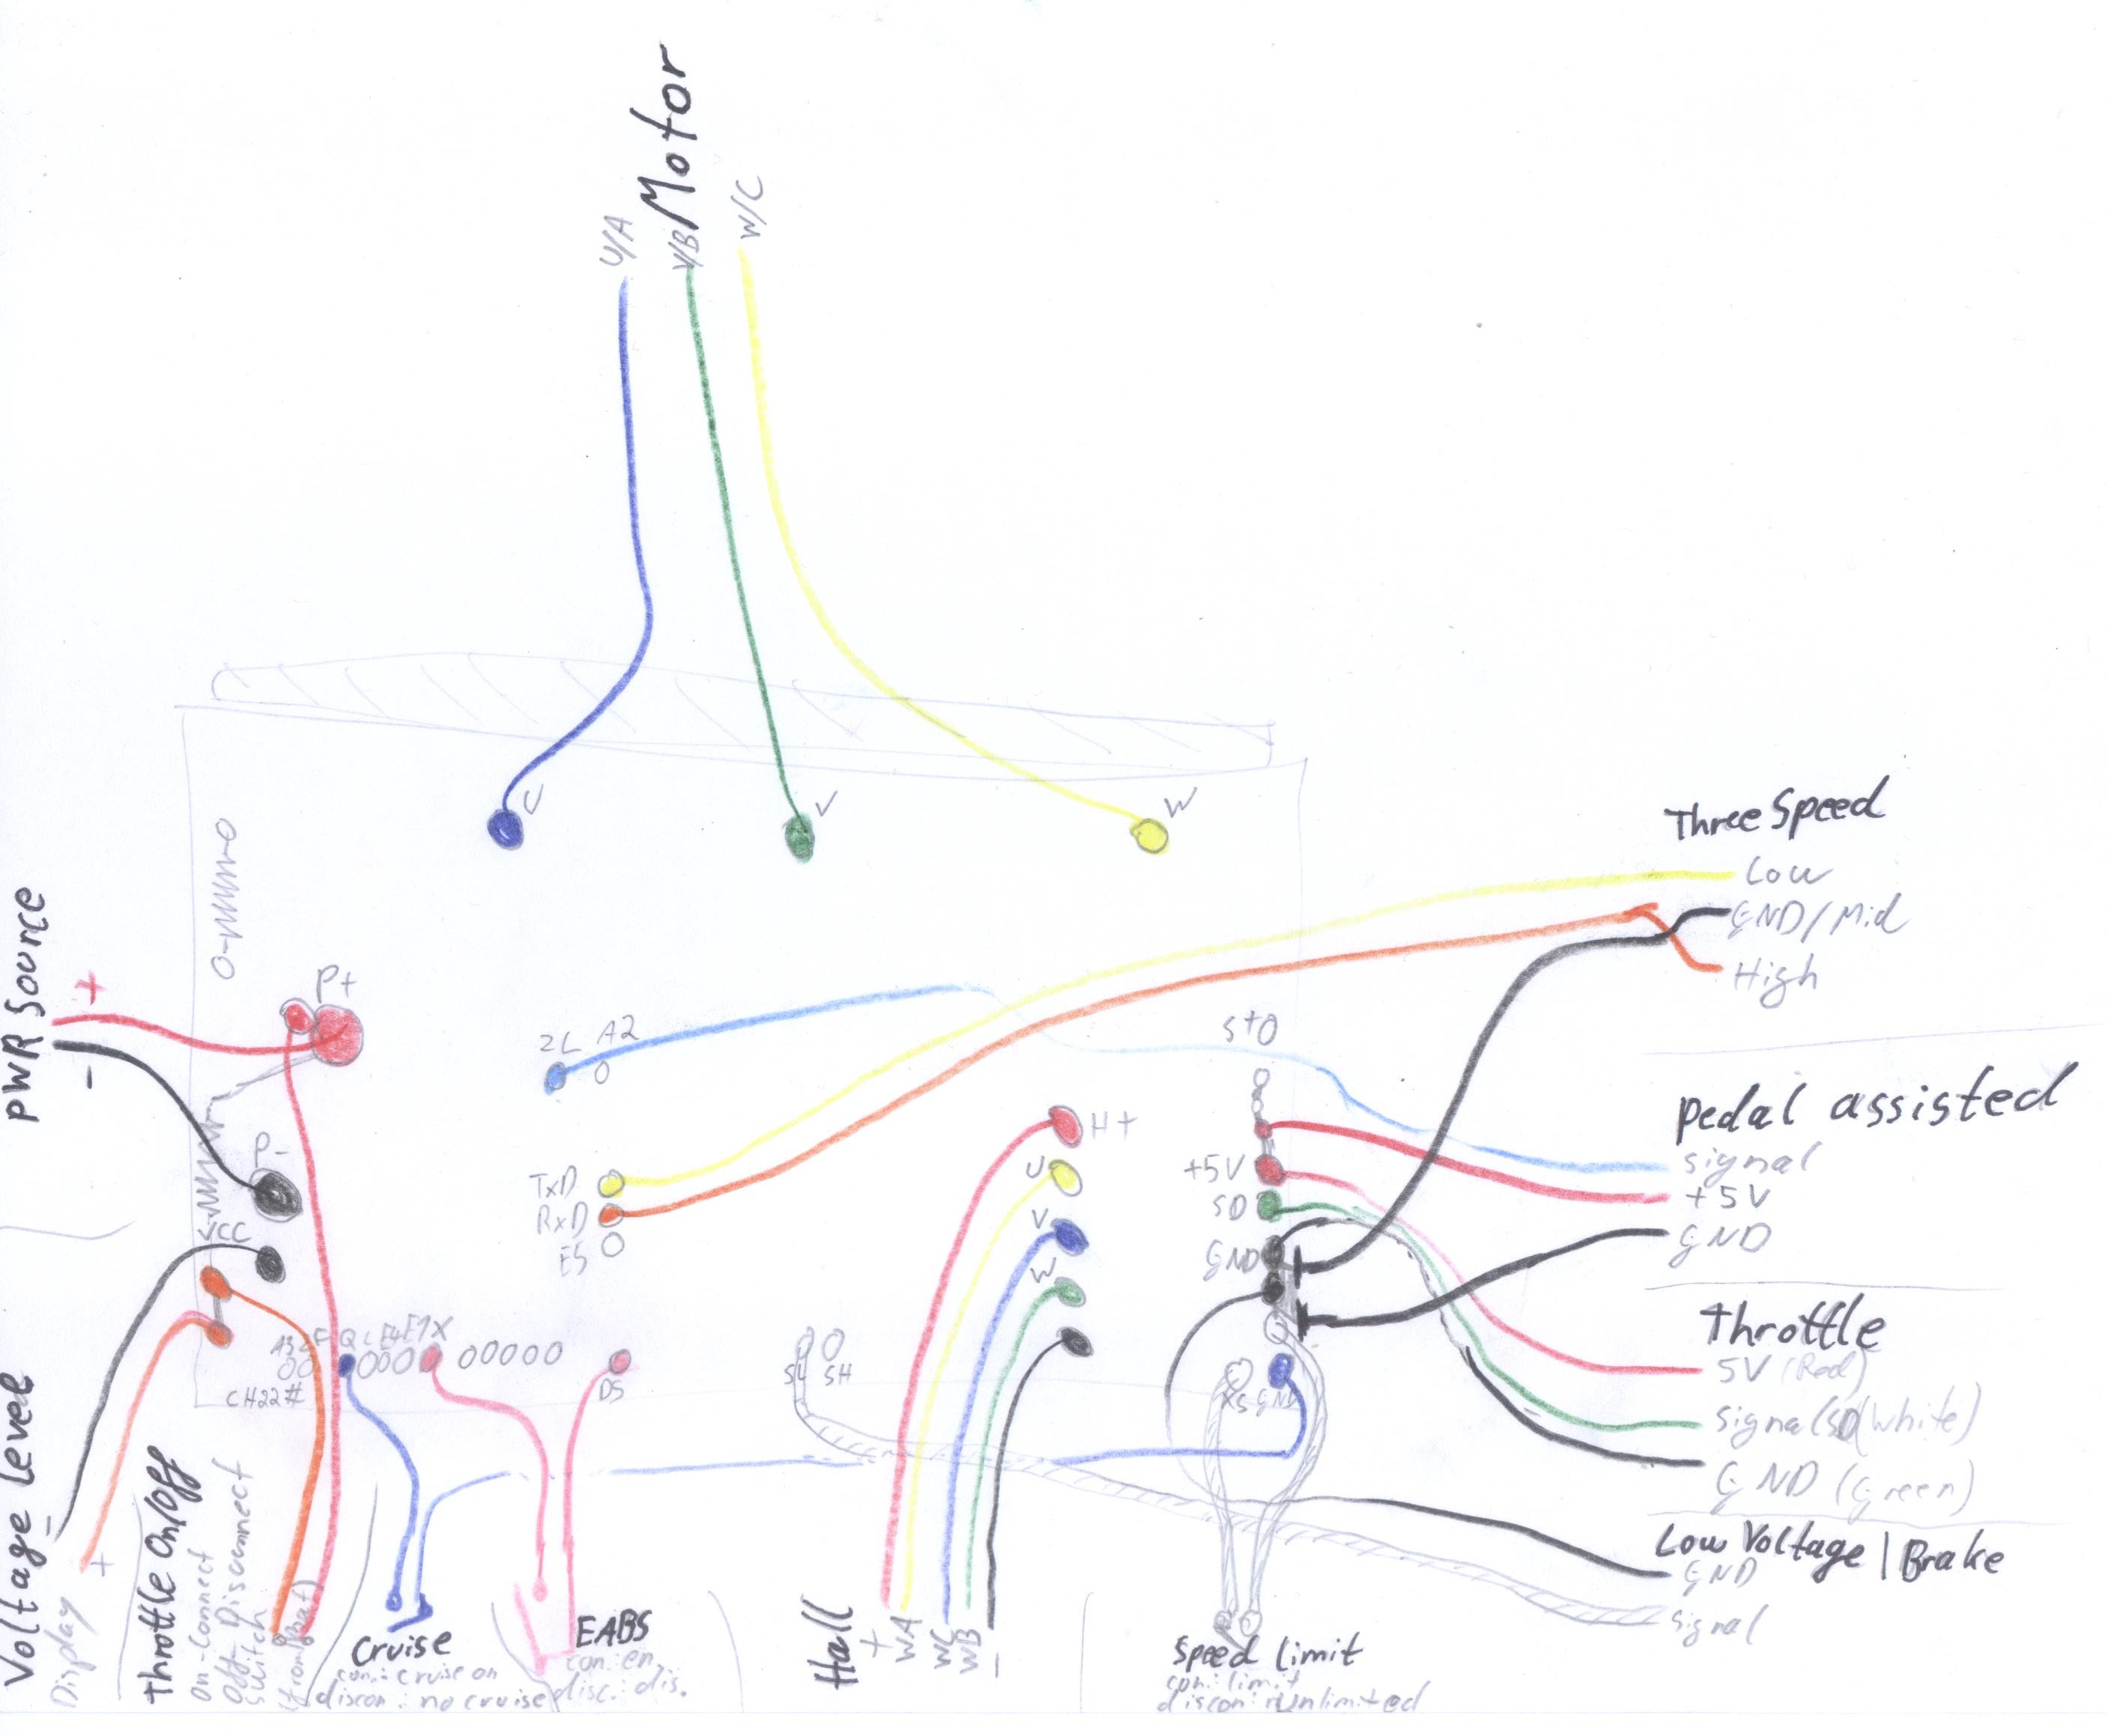 Motor
U/A
V/B
W/C
U
V
W
Three Speed
Low
GND/Mid
High
PWR Source
+
-
P+
P-
VCC
2L A2
TxD
RxD
E5
H+
U
V
W
+5V
SD
GND
pedal assisted
signal
+5V
GND
Throttle
5V (Red)
signal SD (White)
GND (Green)
Low Voltage | Brake
GND
signal
CH22#
E1X
DS
SL SH
XS GND
Voltage Level
Display
-
+
throttle On/Off
On-Connect
Off-Disconnect
switch
Cruise
con.: cruise on
discon: no cruise
EABS
con: en.
disc.: dis.
Hall
+
WA
WC
WB
-
Speed limit
con: limit
discon: Unlimited